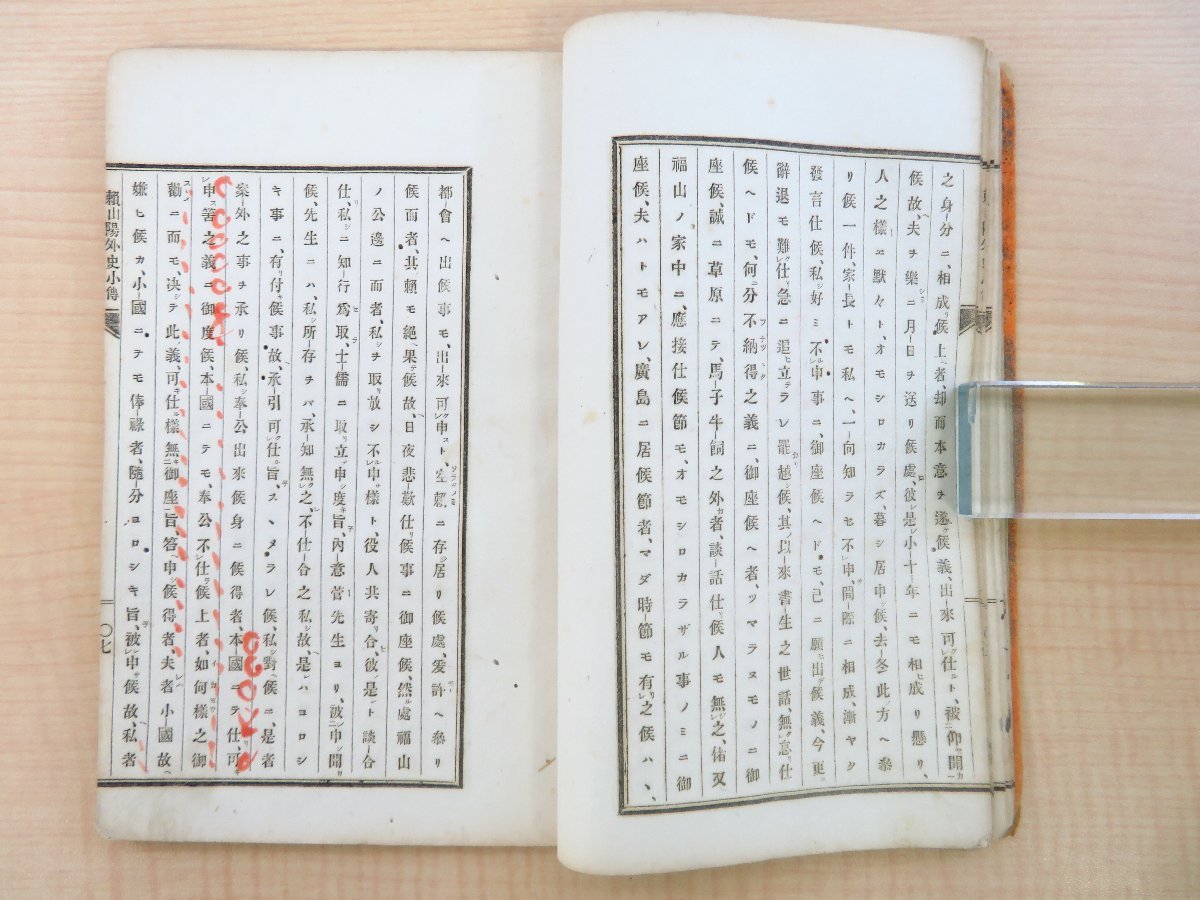 之身分ニ、相成リ候上ハ者、却而本意ヲ遂ケ候義、出來可クレ仕ルト、被二仰セ聞カ一
候故ヘ、夫ヲ樂シミニ月日ヲ送リ候處、彼レ是レ小十年ニモ相成ヒリ懸リ、
人之樣ニ默々ト、オモシロカラズ、暮シ居申シ候、去冬此方ヘ參
リ候一件、家長トモ私ヘ、一向知ラセ不レ申サ、間際ニ相成、漸ヤク
發言仕候、私シ好ミ不レ申事ニ、御座候ヘドモ、己ニ願セ出デ候義、今更ラ
辭退モ難クレ仕リ、急ニ追ヒ立テラレ罷リ越シ候、其ノ以來書生之世話、無クレ怠リ仕
候ヘドモ、何ニ分不納得之義ニ、御座候ヘ者、ツマラヌモノニ御
座候、誠ニ草原ニテ、馬子牛飼之外カ者、談話仕リ候人モ無シレ之、佑又
福山ノ家中ニ、應接仕候節モ、オモシロカラザル事ノミニ御
座候、夫ハトモアレ、廣島ニ居候節者、マダ時節モ有リレ之候ハヽ、
都會ヘ出候事モ、出來可クレ申スト、空頼ソラダノミニ存シ居リ候處、爰許ヘ參リ
候而者、其頼モ絕ヘ果テ候故、日夜悲歎仕リ候事ニ御座候、然ル處福山
ノ公邊ニ而者、私シヲ取リ放シ不レ申樣ト、役人共寄リ合ヒ、彼レ是レト談合
仕リ、私シニ知行爲レ取ラ、士儒ニ取リ立申シ度キ旨、內意菅先生ヨリ、被二申シ聞一
候、先生ニハ、私シ所存ヲバ、承知無クレ之、不仕合之私シ故、是レハヨロシ
キ事ニ、有リ付キ候事故、承引可クレ仕ル旨、スヽメラレ候、私シ對ヘ候ニ、是者
案外之事ヲ承リ候、私シ奉公出來候身ニ候得者、本國ニヲ仕リ、可
レ申ス筈之義ニ御度候、本國ニテモ、奉公不レ仕ラ候上者、如何樣イカヨウ之御
勸スヽメニ而モ、決シテ此義、可キレ仕ル樣無二御座一旨答ヘ申シ候得者、夫レ者小國故ヘ
嫌ヒ候カ、小國ニヲモ俸祿者、隨分ヨロシキ旨、被レ申サ候故、私者
賴山陽外史小傳
〇七